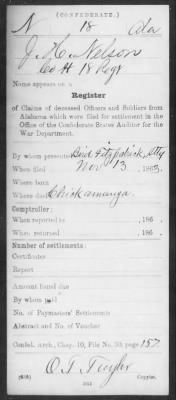 (CONFEDERATE.)
N 18 Ala
J. H. Nelson
Co H 18 Regt
Name appears on a
Register
of Claims of deceased Officers and Soldiers from
Alabama which were filed for settlement in the
Office of the Confederate States Auditor for the
War Department.
By whom presented Bird Fitzpatrick Atty
When filed Nov 13, 1863.
Where born
Where died Chickamauga.
Comptroller:
When reported to , 186 .
When returned , 186 .
Number of settlements:
Certificates
Report
Amount found due
By whom paid
No. of Paymasters' Settlements
Abstract and No. of Voucher
Confed. Arch., Chap. 10, File No. 30, page 157
O. T. Taylor
Copyist.